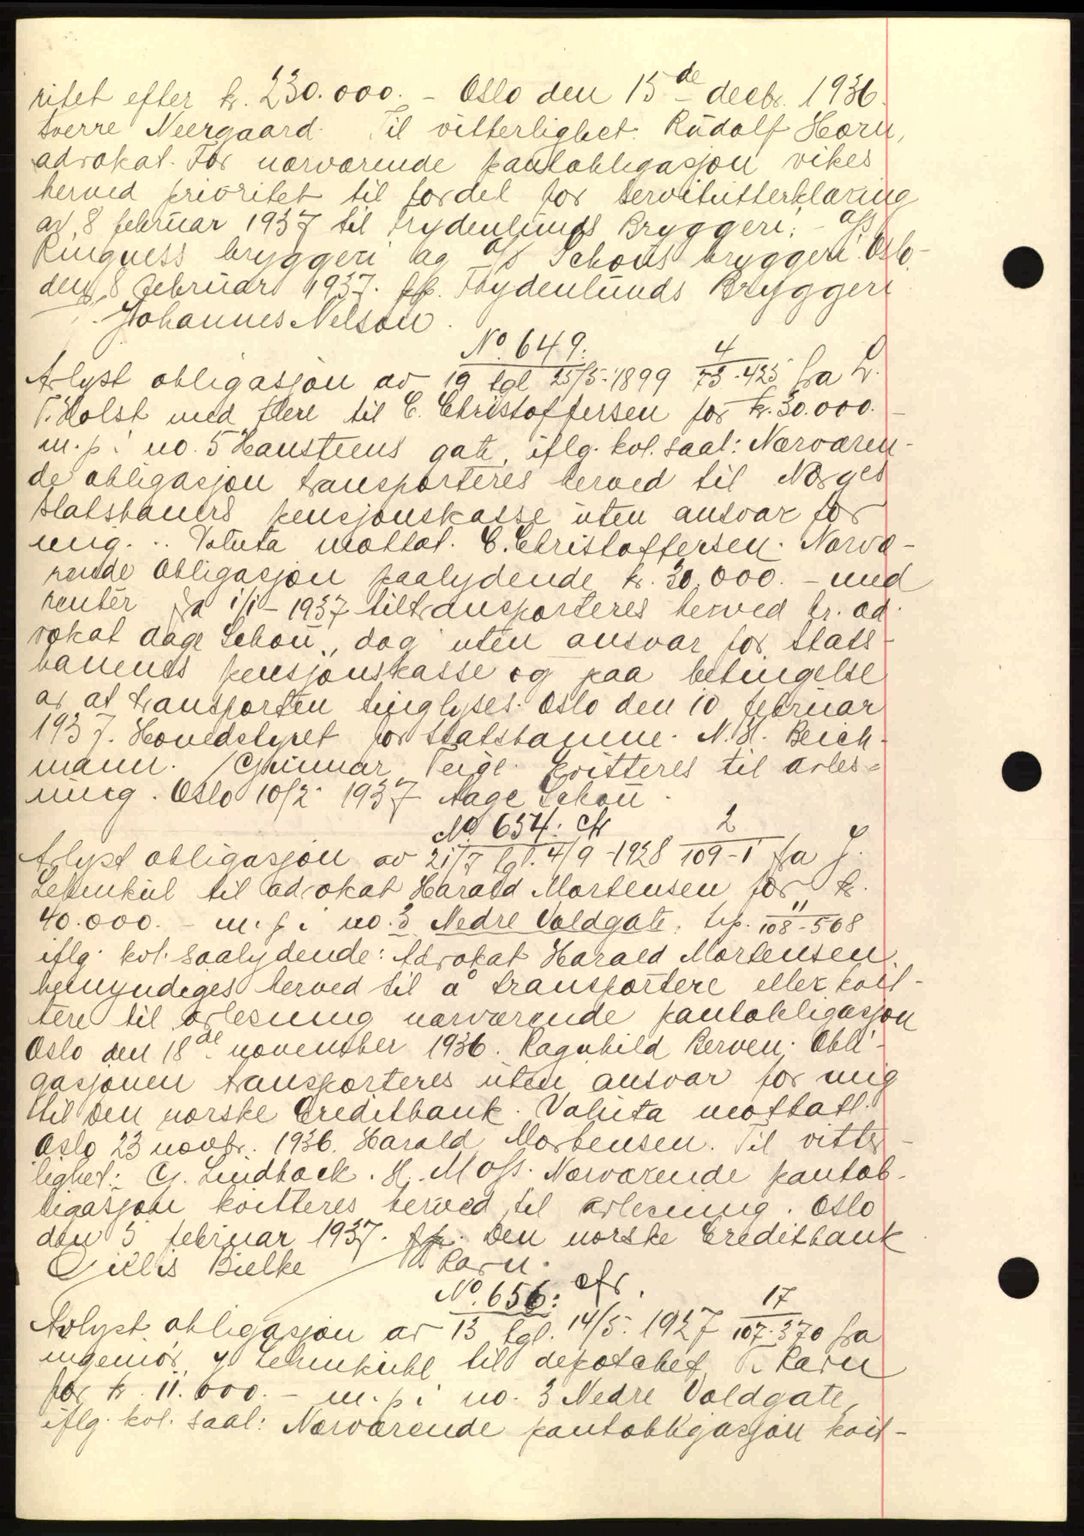 ritet efter kr. 230.000. – Oslo den 15de decbr. 1936.
Sverre Neergaard. Til vitterlighet: Rudolf Horn,
advokat. For nærværende pantobligasjon vikes
herved prioritet til fordel for servitutterklæring
av 8 februar 1937 til Frydenlunds Bryggeri; – a/s
Ringness bryggeri og a/s Schous bryggeri. Oslo
den 8 februar 1937. pp. Frydenlunds Bryggeri
Johannes Nelson.
No. 649.
Avlyst obligasjon av 19 tgl 25/5-1899 4/73-425 fra L.
T. Holst med flere til C. Christoffersen for kr. 30.000. –
m. p. i no. 5 Hausteens gate, iflg. kvl. saal: Nærværen-
de obligasjon transporteres herved til Norges
statsbaners pensjonskasse uten ansvar for
mig. Valuta mottat. C. Christoffersen. Nærvæ-
rende obligasjon paalydende kr. 30.000. – med
renter fra 1/1-1937 tiltransporteres herved hr. ad-
vokat Aage Schou, dog uten ansvar for stats-
banenes pensjonskasse og paa betingelse
av at transporten tinglyses. Oslo den 10 februar
1937. Hovedstyret for statsbanene. N. H. Beich-
mann. / Gunnar Teige. Kvitteres til avles-
ning. Oslo 10/2 1937 Aage Schou.
No. 654: cfr
Avlyst obligasjon av 21/7 tgl. 4/9-1928 2/109-1 fra J.
Lehmkul til advokat Harald Mortensen for kr.
40.000. – m. p. i no. 3 Nedre Voldgate, 11/108-568
iflg. kvl. saalydende: Advokat Harald Mortensen
bemyndiges herved til å transportere eller kvit-
tere til avlesning nærværende pantobligasjon
Oslo den 18de november 1936. Ragnhild Berven. Obli-
gasjonen transporteres uten ansvar for mig
til Den norske Creditbank. Valuta mottatt.
Oslo 23 novbr. 1936. Harald Mortensen. Til vitter-
lighet: G. Lindback. H. Moss. Nærværende pantob-
ligasjon kvitteres herved til avlesning. Oslo
den 5 februar 1937. pp. Den norske Creditbank
Gillis Bielke / Ravn.
No. 656: cfr.
Avlyst obligasjon av 13 tgl. 14/5. 1927 17/107-370 fra
ingeniør J Lehmkuhl til depotchef Ravn
for kr. 11.000. – m. p. i no. 3 Nedre Voldgate,
iflg. kvl. saal: Nærværende pantobligasjon kvit-